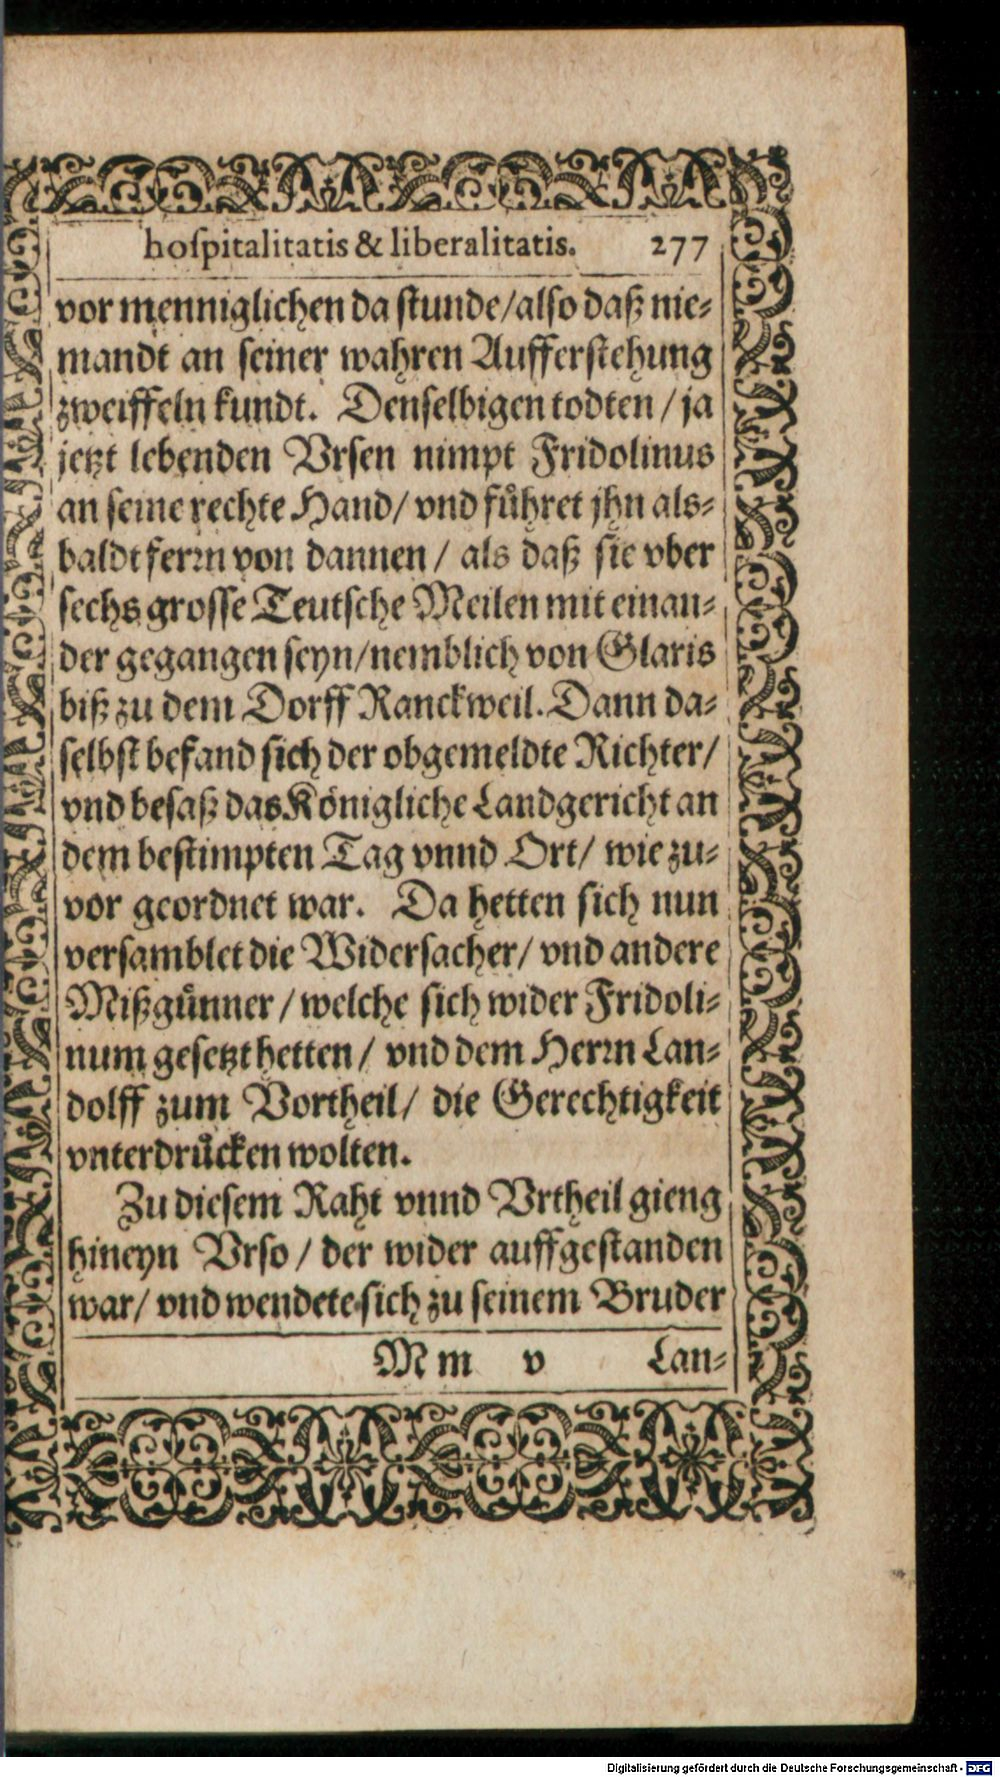 hoſpitalitatis & liberalitatis. 277
vor menniglichen da ſtunde/alſo daß nie⸗
mandt an ſeiner wahren Aufferſtehung
zweiffeln kundt. Denſelbigen todten / ja
jetzt lebenden Vrſen nimpt Fridolinus
an ſeine rechte Hand/ vnd fuͤhret jhn als⸗
baldt ferꝛn von dannen / als daß ſie vber
ſechs groſſe Teutſche Meilen mit einan⸗
der gegangen ſeyn/nemblich von Glaris
biß zu dem Dorff Ranckweil. Dann da⸗
ſelbſt befand ſich der obgemeldte Richter/
vnd beſaß das Königliche Landgericht an
dem beſtimpten Tag vnnd Ort/ wie zu⸗
vor geordnet war. Da hetten ſich nun
verſamblet die Widerſacher/ vnd andere
Mißguͤnner / welche ſich wider Fridoli⸗
num geſetzt hetten/ vnd dem Herꝛn Lan⸗
dolff zum Vortheil/ die Gerechtigkeit
vnterdruͤcken wolten.
Zu dieſem Raht vnnd Vrtheil gieng
hineyn Vrſo / der wider auffgeſtanden
war/ vnd wendete ſich zu ſeinem Bruder
M m v Lan⸗
Digitalisierung gefördert durch die Deutsche Forschungsgemeinschaft - DFG